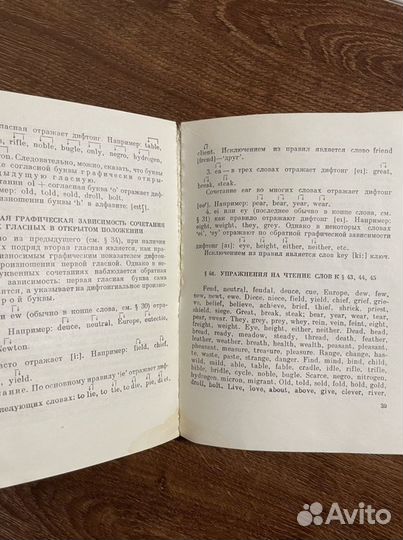 гласная отражает дифтонг. Например: table,
rifle, noble, bugle, only, negro, hydrogen,
Следовательно, можно, сказать, что буквы
согласной буквы графически откры-
дыдущую гласную.
сочетании ol + согласная буква 'o' отражает диф-
например: old, told, sold, droll, bolt.
произношении буквы 'h' в алфавите: [eɪtʃ].
ГРАФИЧЕСКАЯ ЗАВИСИМОСТЬ СОЧЕТАНИЯ
ГЛАСНЫХ В ОТКРЫТОМ ПОЛОЖЕНИИ
из предыдущего (см. § 34), при наличии
подряд вторая гласная является, как пра-
износимым графическим показателем дифтон-
произношения первой гласной. Однако в не-
квенных сочетаниях наблюдается обратная
зависимость: первая гласная буква сама
сится, а указывает на дифтонгиальное произно-
второй буквы.
ew (обычно в конце слова, см. § 30) отра-
Например: deuce, neutral, Europe, eutectic,
Newton.
часто отражает [i:]. Например: field, chief,
yield.
тание. По основному правилу 'ie' отражает диф-
ледующих словах: to lie, to tie, to die, pie, diet,
client. Исключением из правил является слово friend
[frend]—'друг'.
3. ea — в трех словах отражает дифтонг [eɪ]: great,
break, steak.
Сочетание ear во многих словах отражает дифтонг
[ɛə]. Например: pear, bear, year, wear.
4. ei или ey (последнее обычно в конце слова, см.
§ 31) как правило отражает дифтонг [eɪ]. Например:
eight, weight, they, grey. Однако в некоторых словах
'ei', 'ey' отражает по обратной графической зависимости
дифтонг [aɪ]: eye, height, either, neither, etc.
Исключением из правила является слово key [ki:] ключ.
§ 46. УПРАЖНЕНИЯ НА ЧТЕНИЕ СЛОВ К § 43, 44, 45
Feud, neutral, feudal, deuce, cue, Europe, dew, few,
new, newt, ewe. Diece, niece, field, yield, chief, grief, griev-
e, belief, believe, achieve, brief, thief, shriek, priest,
shield, siege. Great, break, steak; bear, pear, wear, tear,
pear, swear. They, grey, prey, whey, rein, vein, feint, eight,
freight, weight. Eye, height, either, neither. Dead, head,
bread, ready, meadow, steady, thread, death, feather,
leather, weather, breath, health, wealth, peasant, pleasant,
pheasant, measure, treasure, pleasure. Range, change, has-
te, waste, paste, strange, danger. Find, mind, bind, child,
mild, wild, able, table, fable, cradle, idle, rifle, trifle,
bible, bridle, cycle, noble, bugle. Scarce, negro, nitrogen,
hydrogen, micron, migrant. Old, told, sold, fold, hold, gold,
droll, bolt. Live, love, about, above, give, clever, river,
39
Avito